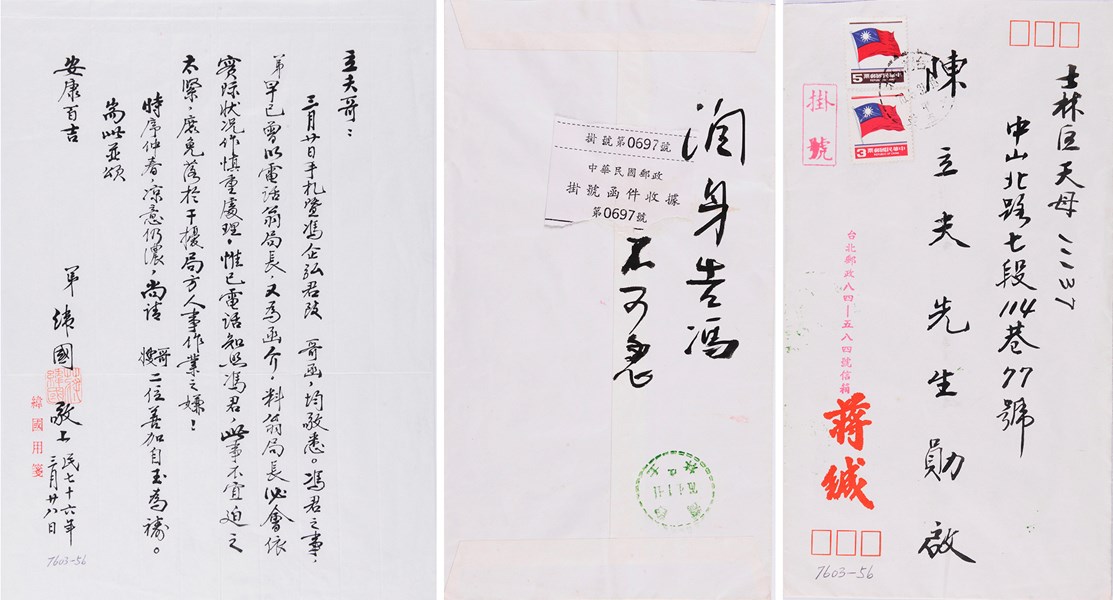 立夫哥：
三月廿日手札暨馮企弘君致 哥函，均敬悉。馮君之事，
弟早已曾以電話翁局長，又為函介，料翁局長必會依
實际狀况作慎重處理，惟已電話知照馮君，此事不宜迫之
太緊，庶免落於干擾局方人事作業之嫌！
時序仲春，涼意仍濃，尚請 哥嫂二位善加自玉為禱。
耑此並頌
安康百吉
弟 緯國 敬上 民七十六年
三月廿八日
緯國用箋
7603-56
掛號第0697號
中華民國郵政
掛號函件收據
第0697號
潤身告馮
不可急
士林區天母
中山北路七段114巷77號
陳立夫先生勛啟
5
中華民國郵票
3
中華民國郵票
掛號
台北郵政八四—五八四號信箱
蔣緘
7603-56